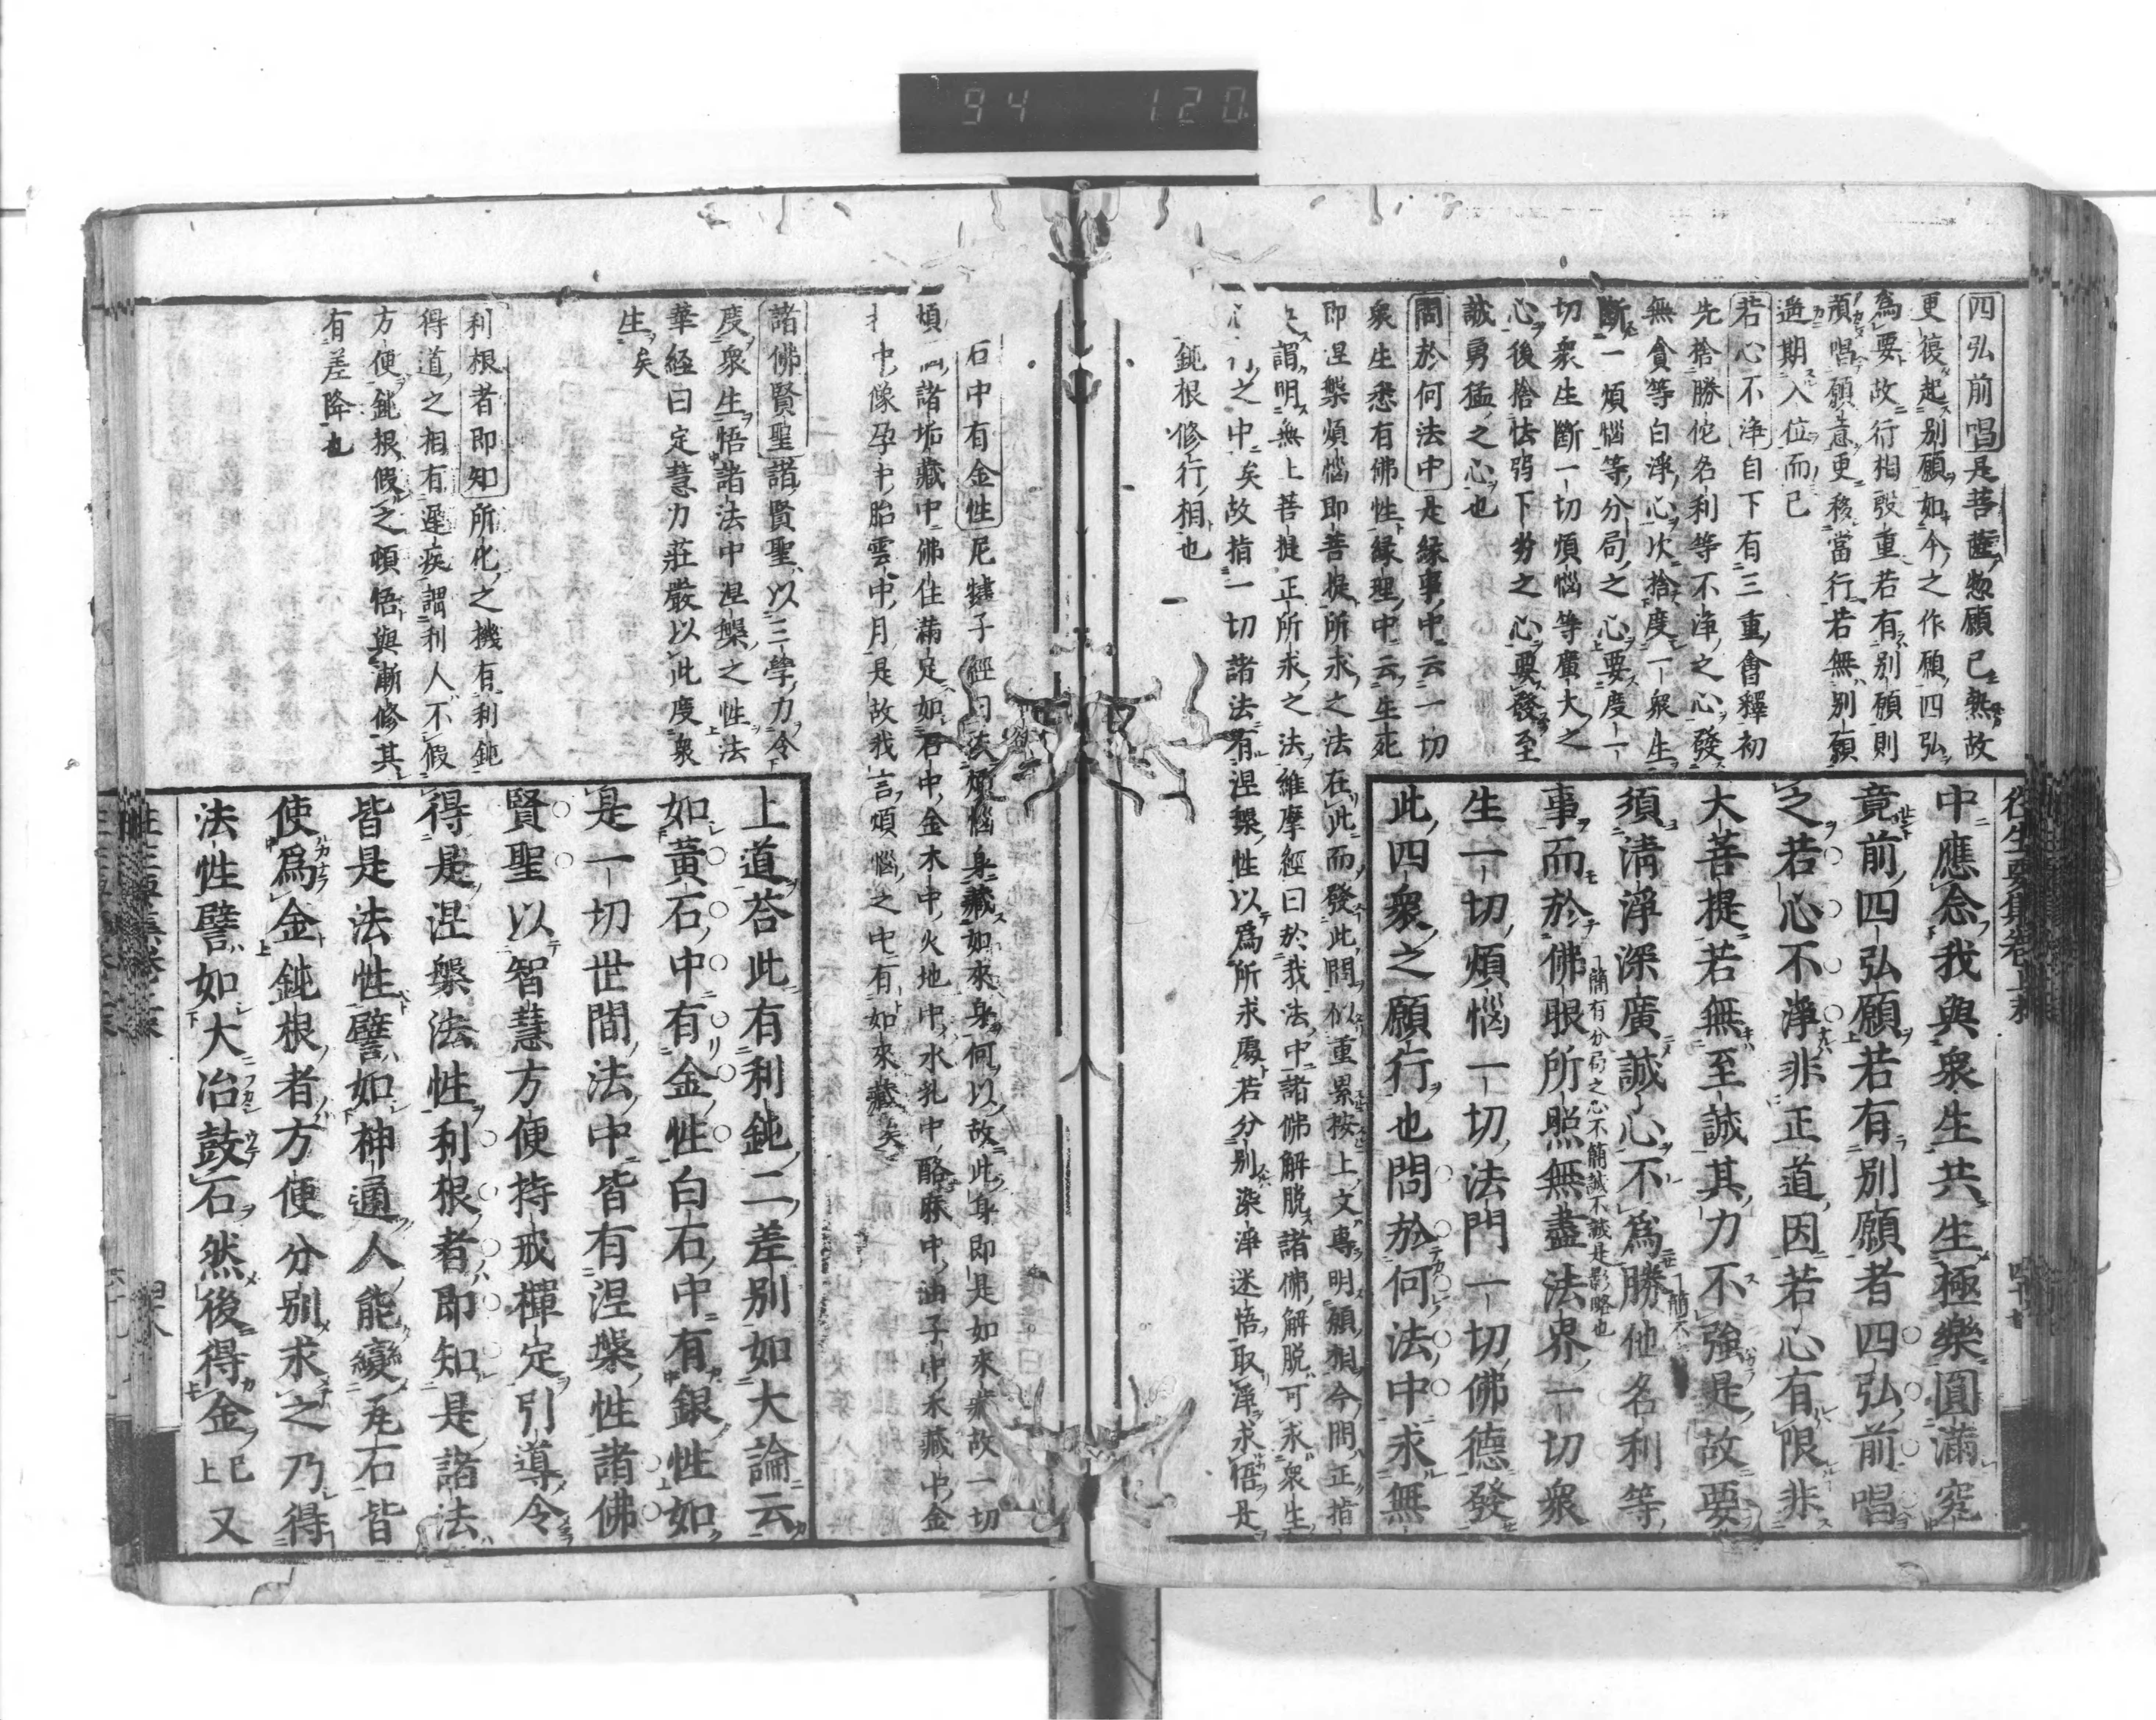 94 120
四弘前唱是菩薩惣願已熟故
更復起別願如今之作願四弘
為要故行相殷重若有別願則
頑唱願意更移當行若無別願
遇期入位而已
若心不淨自下有三重會釋初
先捨勝他名利等不淨之心發
無貪等白淨心次捨度一衆生
斷一煩惱等分局之心要度一
切衆生斷一切煩惱等廣大之
心後捨怯弱下劣之心要發至
誠勇猛之心也
問於何法中是緣事中云一切
衆生悉有佛性緣理中云生死
即涅槃煩惱即菩提所求之法在此而發此問似重累按上文專明願相今問正指
謂明無上菩提正所求之法維摩經曰於我法中諸佛解脫諸佛解脫可求衆生
之中矣故指一切諸法有涅槃性以為所求處若分別染淨迷悟取淨求悟是
鈍根修行相也
往生要集卷上末
中應念我與衆生共生極樂圓滿究
竟前四弘願若有別願者四弘前唱
之若心不淨非正道因若心有限非
大菩提若無至誠其力不強是故要
須清淨深廣誠心不為勝他名利等
簡不
事而於佛眼所照無盡法界一切衆
簡有分局之心不簡誠不誠是影略也
生一切煩惱一切法門一切佛德發
此四衆之願行也問於何法中求無
石中有金性尼犍子經曰法煩惱身藏如來身何以故此身即是如來藏故一切
煩諸垢藏中佛住滿足如石中金木中火地中水乳中酪麻中油子中禾藏中金
中像孕中胎雲中月是故我言煩惱之中有如來藏矣
諸佛賢聖諸賢聖以三學力令
度衆生悟諸法中涅槃之性法
華經曰定慧力莊嚴以此度衆
生矣
利根者即知所化之機有利鈍
得道之相有遲疾謂利人不假
方便鈍根假之頓悟與漸修其
有差降也
上道荅此有利鈍二差別如大論云
如黃石中有金性白石中有銀性如
是一切世間法中皆有涅槃性諸佛
賢聖以智慧方便持戒禪定引導令
得是涅槃法性利根者即知是諸法
皆是法性譬如神通人能變瓦石皆
使為金鈍根者方便分別求之乃得
法性譬如大冶鼓石然後得金已上又